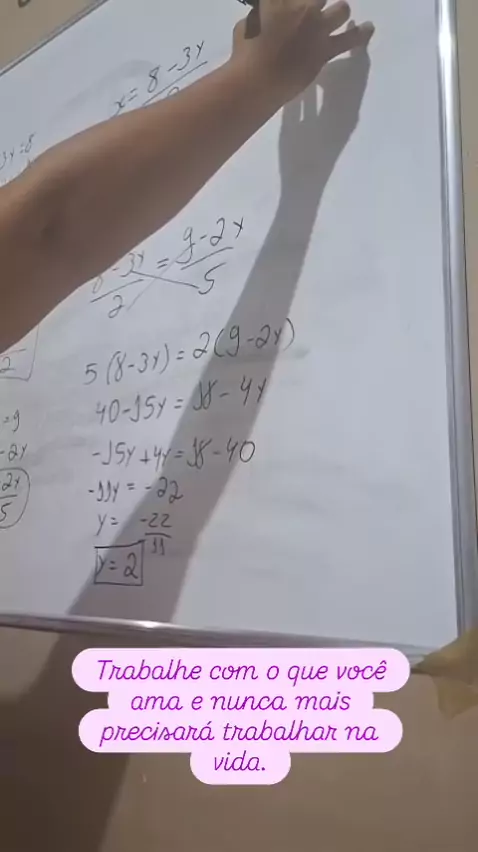 x = 8 - 3y
3y = 8
8 - 3y = 9 - 2y
2 5
5 (8 - 3y) = 2 (9 - 2y)
40 - 15y = 18 - 4y
-15y + 4y = 18 - 40
-11y = -22
y = -22
-11
y = 2
2
= 9
- 2y
2y
5
Trabalhe com o que você
ama e nunca mais
precisará trabalhar na
vida.